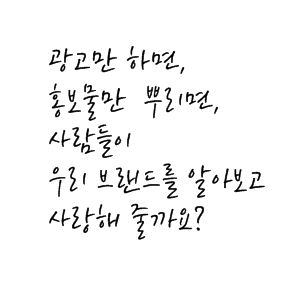 광고만 하면,
홍보물만 뿌리면,
사람들이
우리 브랜드를 알아보고
사랑해 줄까요?